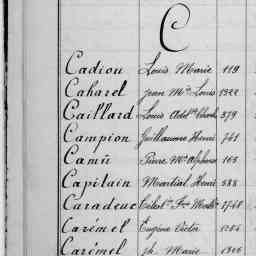 C
Cadiou Louis Marie 119
Caharel Jean Mie Louis 1322
Caillard Louis 379
Campion Guillaume Henri 741
Camic Pierre Alphonse 165
Capitain Martial Henri 588
Caradeuc 1748
Carémel Eugène Victor 1284
Carémel Marie 1306